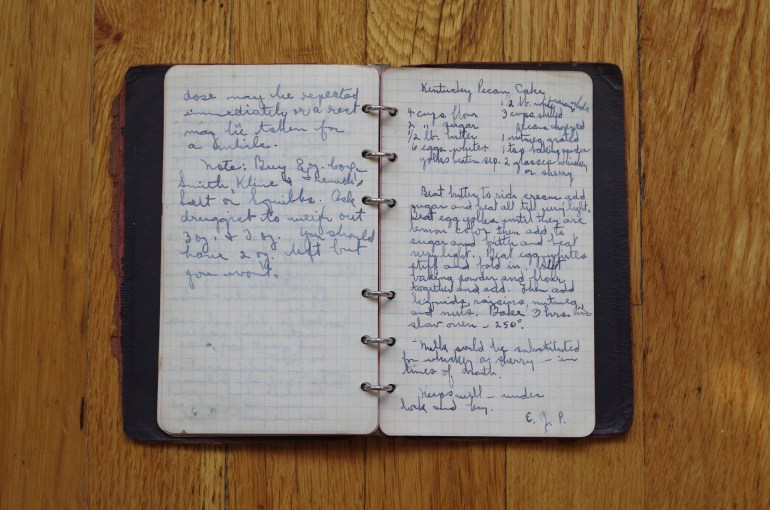 dose may be repeated
immediately or a rest
may be taken for
a while.
Note: Buy 8 oz. box
Smith, Kline &
salt or Squibbs. Ask
druggist to weigh out
3 oz. & 3 oz. You should
have 2 oz. left but
you won't.
Kentucky Pecan Cake
1/2 lb. raisins whole
4 cups flour 3 cups shelled
2 " sugar pecans chopped
1/2 lb. butter 1 nutmeg grated
6 eggs, whites 1 tsp baking powder
yolks beaten sep. 2 glasses whiskey
or sherry
Beat butter to rich cream add
sugar and beat all till very light.
Beat egg yolks until they are
lemon color then add to
sugar and butter and beat
very light. Beat egg whites
stiff and fold in. Sift
baking powder and flour
together and add. Then add
liquids, raisins, nutmeg
and nuts. Bake 3 hrs in
slow oven - 250°.
- Milk could be substituted
for whiskey or sherry - in
times of drouth.
Keeps well - under
lock and key.
E. J. P.